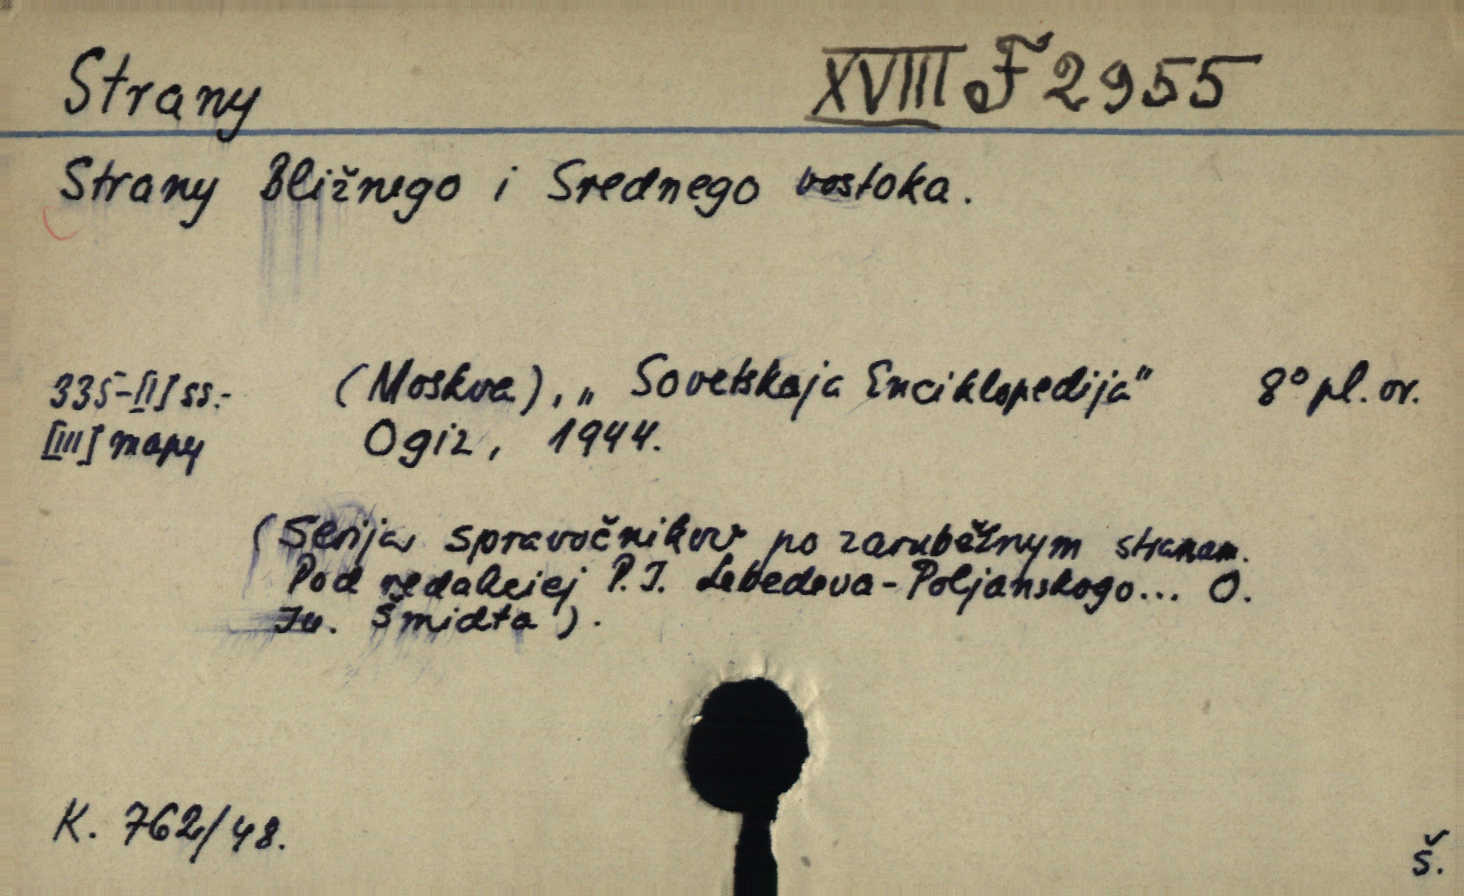 Strany XVIII F 2955
Strany Bližnego i Srednego vostoka.
335-[I] ss.- (Moskva), „Sovetskaja Enciklopedija" 8° pl. or.
[III] mapy Ogiz, 1944.
(Serija spravočnikov po zarubežnym stranam.
Pod redakciej P. I. Lebedeva-Poljanskogo... O.
Ju. Šmidta).
K. 762/48.
Š.